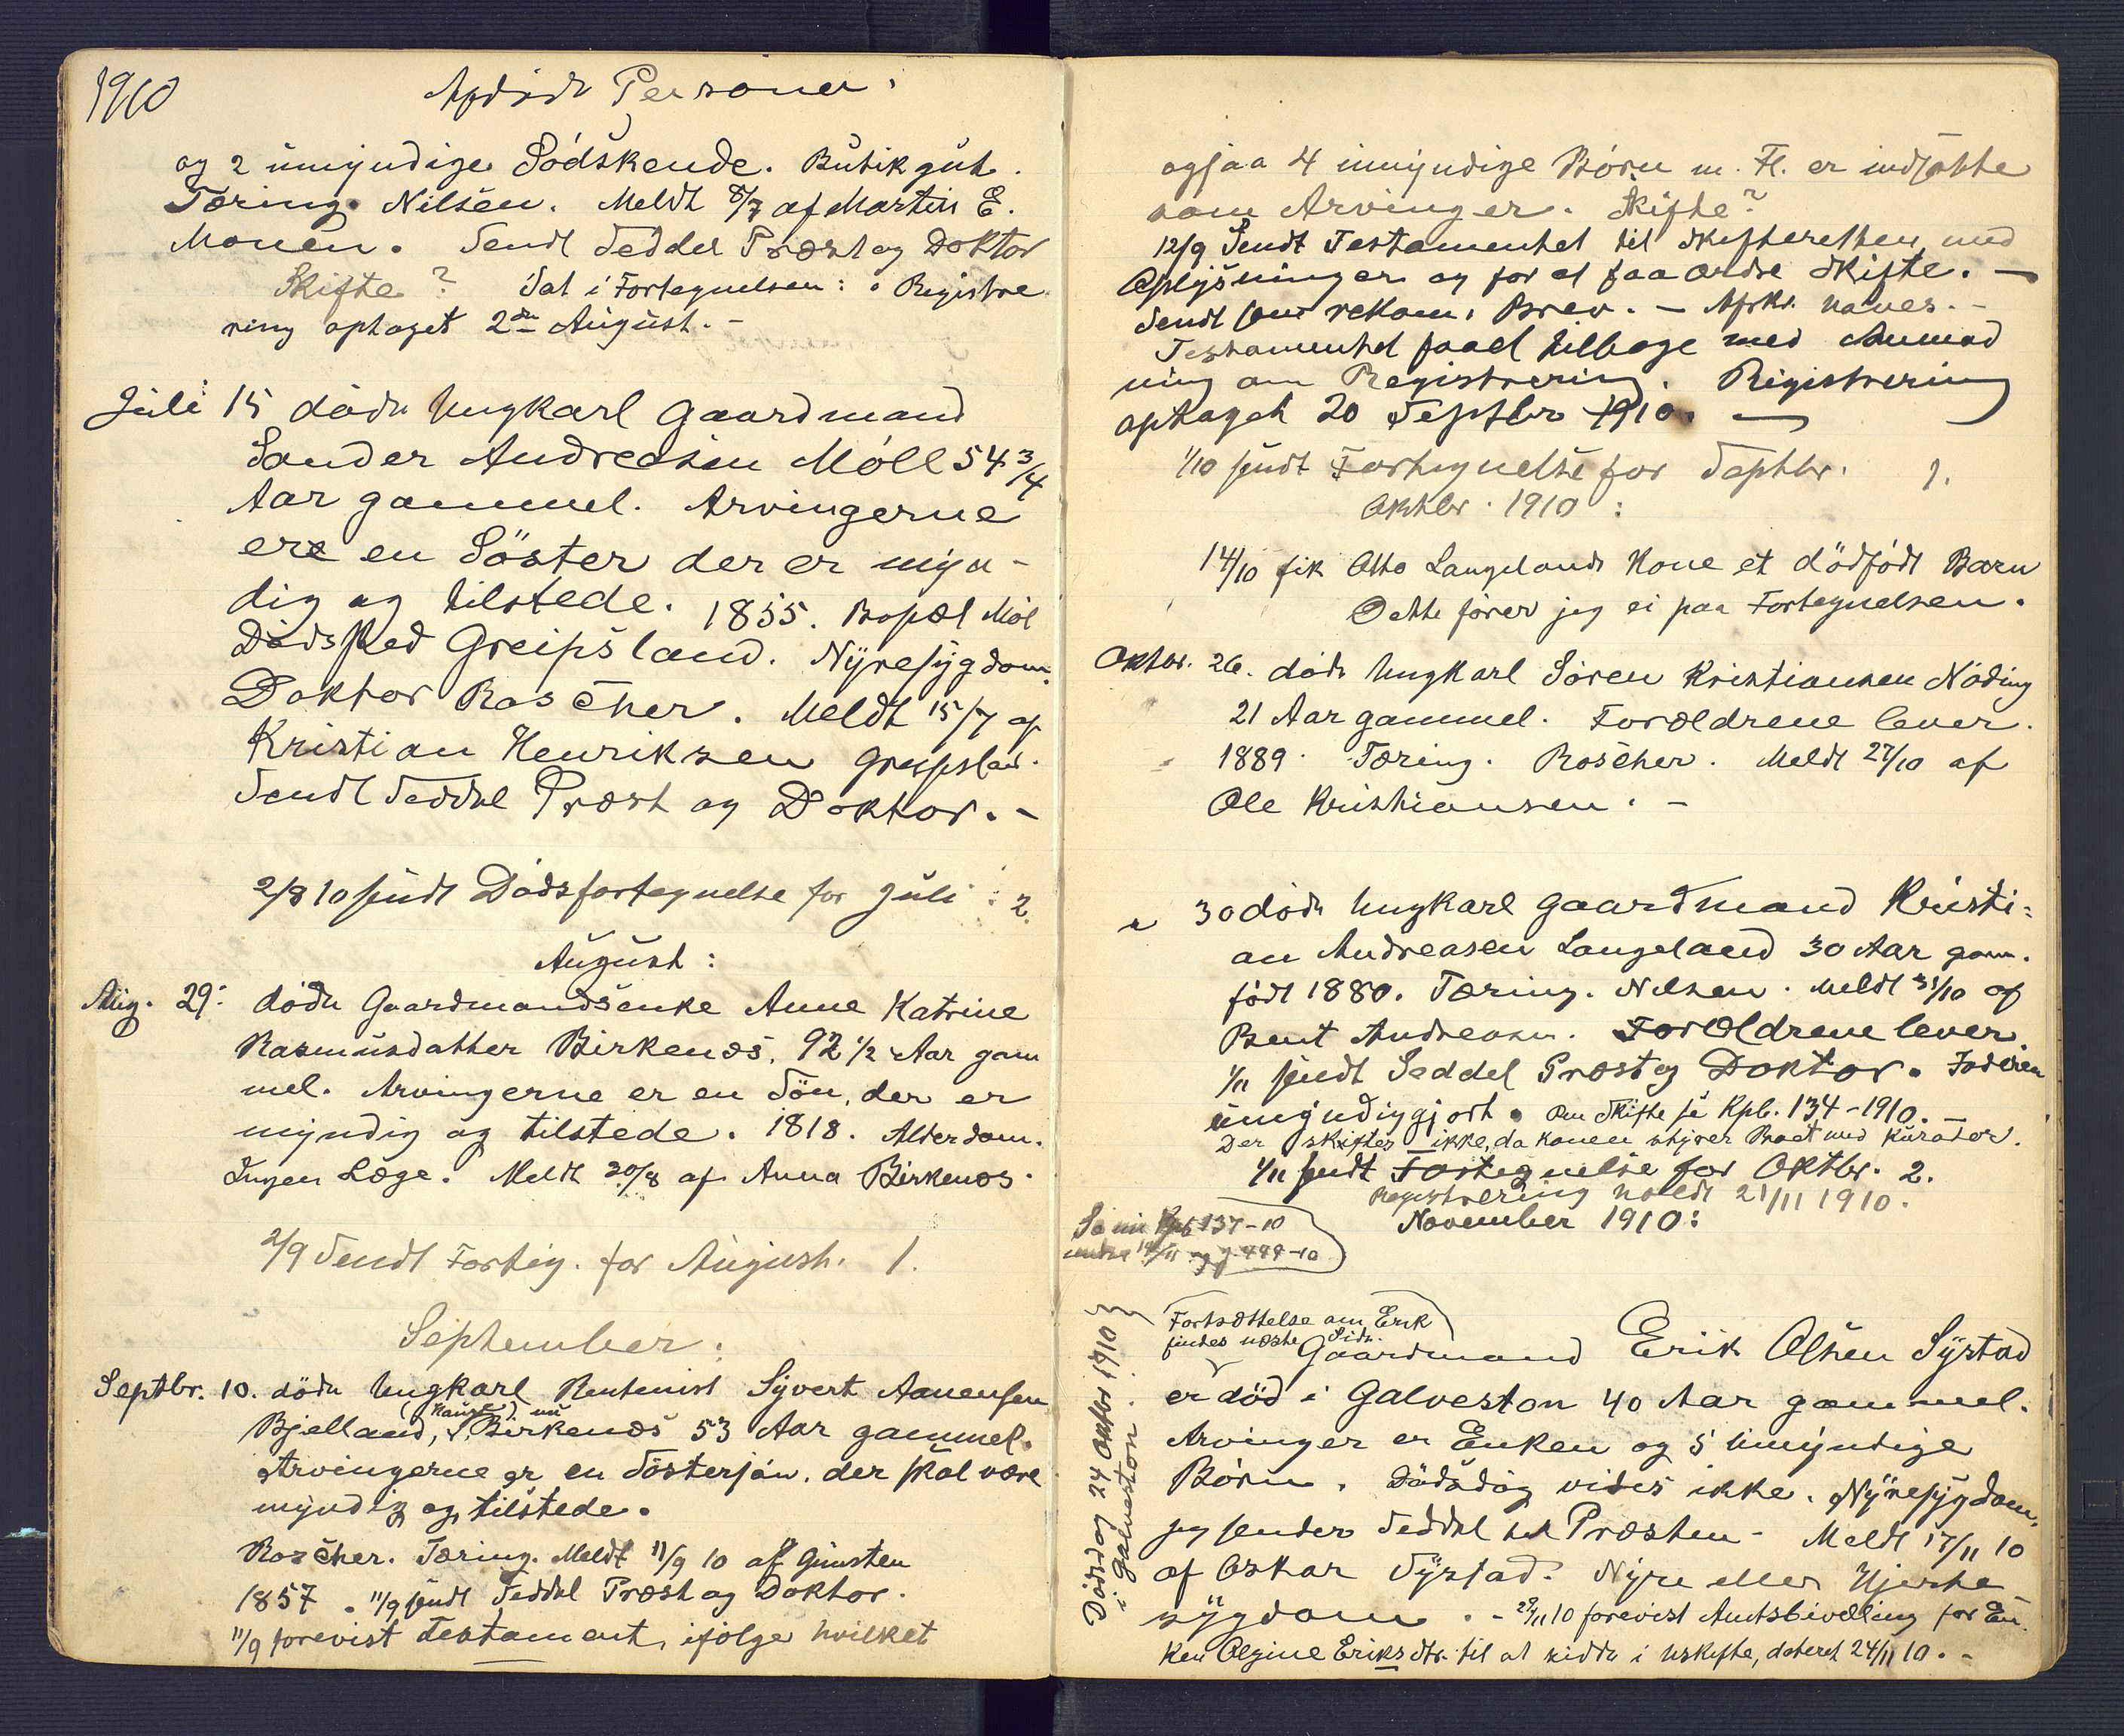 1910
Afdøde Personer.
og 2 umyndige Södskende. Butikgut.
Tæring. Nilsen. Meldt 8/7 af Martin E.
Monen. Sendt Seddel Præst og Doktor
Skifte? Sat i Fortegnelsen: Registre
ring optaget 2den August. -
Juli 15 döde Ungkarl Gaardmand
Sander Andreasen Möll 54 3/4
Aar gammel. Arvingerne
ere en Söster der er myn-
dig og tilstede. 1855. Bopæl Möl
Dödsted Greipsland. Nyresygdom.
Doktor Roscher. Meldt 15/7 af
Kristian Henriksen Greipsland.
Sendt Seddel Præst og Doktor. -
2/8 10 sendt Dödsfortegnelse for Juli : 2.
August:
Aug. 29. döde Gaardmandsenke Anne Katrine
Rasmusdatter Birkenæs, 92 1/2 Aar gam
mel. Arvingerne er en Sön, der er
myndig og tilstede. 1818. Alterdom.
Ingen Læge. Meldt 30/8 af Anna Birkenæs.
2/9 Sendt Forteg. for August. 1.
September:
Septbr. 10. döde Ungkarl Rentenist Syvert Aanensen
Bjelland, nu Birkenæs 53 Aar gammel.
Arvingerne er en Söstersön, der skal være
myndig og tilstede.
Roscher. Tæring. Meldt 11/9 10 af Gunsten
1857. 11/9 sendt Seddel Præst og Doktor.
11/9 forevist Testament, ifölge hvilket
ogsaa 4 umyndige Börn m. Fl. er indsatte
som Arvinger. Skifte?
12/9 Sendt Testamentet til Skifteretten med
Oplysninger og for at faa Ordre Skifte. -
Sendt som rekom. Brev. - Afskr. haves. -
Testamentet faaet tilbage med Anmod
ning om Registrering. Registrering
optaget 20 Septbr 1910. -
1/10 sendt Fortegnelse for Septbr. 1.
Oktbr. 1910:
14/10 fik Otto Langelands Kone et dödfödt Barn
Dette förer jeg ei paa Fortegnelsen.
Oktbr. 26. döde Ungkarl Sören Kristiansen Nöding
21 Aar gammel. Forældrene lever.
1889. Tæring. Roscher. Meldt 27/10 af
Ole Kristiansen. -
" 30 döde Ungkarl Gaardmand Kristi-
an Andreasen Langeland 30 Aar gam.
födt 1880. Tæring. Nilsen. Meldt 31/10 af
Bent Andreasen. Forældrene lever.
1/11 sendt Seddel Præst og Doktor. Faderen
umyndiggjort. Om Skifte se Kpb. 134-1910. -
Der skiftes ikke, da Konen styrer Boet med Kurator.
1/11 sendt Fortegnelse for Oktbr. 2.
Registrering holdt 21/11 1910.
November 1910:
Se min Kpb 137-10
og 499-10
Fortsættelse om Erik
findes næste Side.
Gaardmand Erik Olsen Syrtad
er död i Galveston 40 Aar gammel.
Arvinger er Enken og 5 umyndige
Börn. Dödsdag vides ikke. Nyresygdom.
jeg sender Seddel til Præsten - Meldt 17/11 10
af Oskar Syrtad. Nyre eller Hjerte
sygdom. - 29/11 10 forevist Amtsbivilling for En
ken Olgine Eriksdtr. til at sidde i Uskifte, dateret 24/11 10. -
Dödsdag 24 Oktbr 1910
i Galveston.